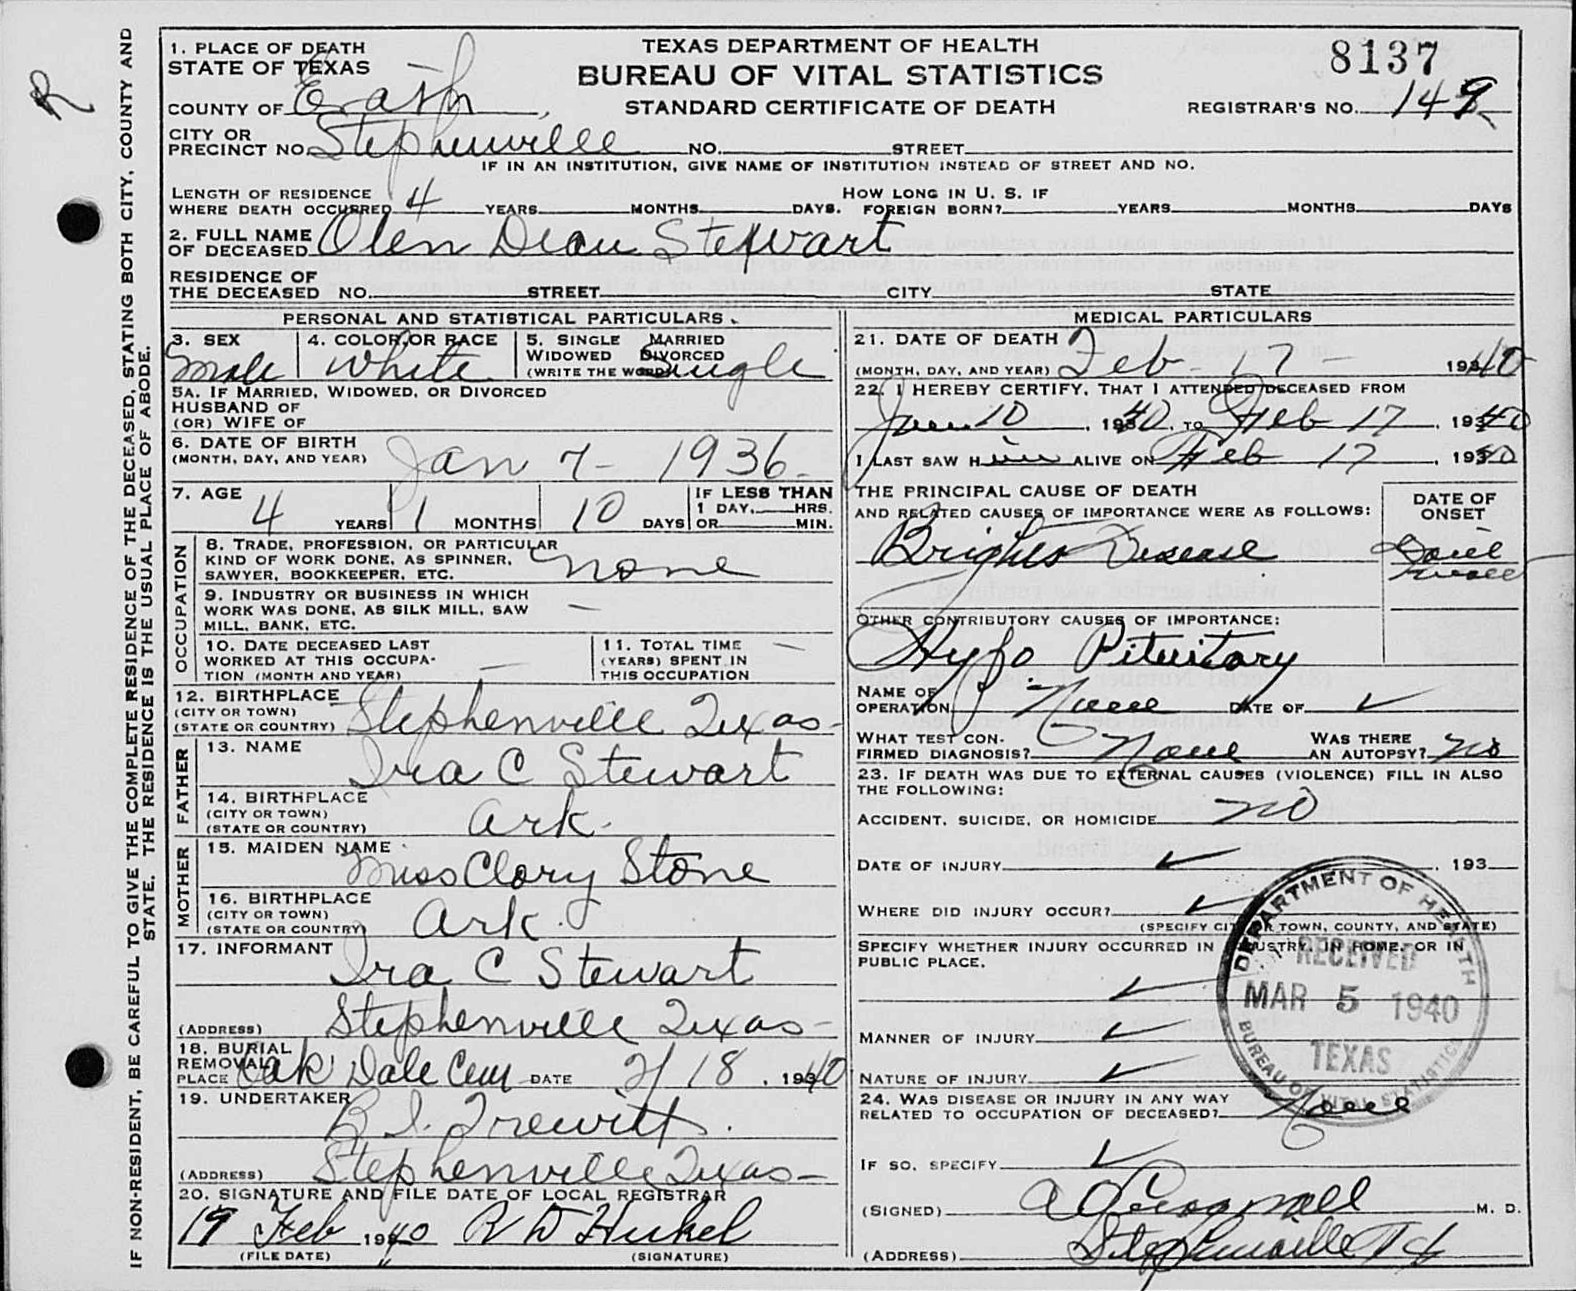 IF NON-RESIDENT, BE CAREFUL TO GIVE THE COMPLETE RESIDENCE OF THE DECEASED, STATING BOTH CITY, COUNTY AND
STATE. THE RESIDENCE IS THE USUAL PLACE OF ABODE.
R
1. PLACE OF DEATH
STATE OF TEXAS
COUNTY OF Erath
TEXAS DEPARTMENT OF HEALTH
BUREAU OF VITAL STATISTICS
STANDARD CERTIFICATE OF DEATH
8137
REGISTRAR'S NO. 149
CITY OR
PRECINCT NO. Stephenville NO. STREET
IF IN AN INSTITUTION, GIVE NAME OF INSTITUTION INSTEAD OF STREET AND NO.
LENGTH OF RESIDENCE
WHERE DEATH OCCURRED 4 YEARS MONTHS DAYS.
HOW LONG IN U. S. IF
FOREIGN BORN? YEARS MONTHS DAYS
2. FULL NAME
OF DECEASED Olen Dean Stewart
RESIDENCE OF
THE DECEASED NO. STREET CITY STATE
PERSONAL AND STATISTICAL PARTICULARS
3. SEX
Male
4. COLOR OR RACE
White
5. SINGLE MARRIED
WIDOWED DIVORCED
(WRITE THE WORD) Single
5A. IF MARRIED, WIDOWED, OR DIVORCED
HUSBAND OF
(OR) WIFE OF
6. DATE OF BIRTH
(MONTH, DAY, AND YEAR) Jan 7 - 1936 -
7. AGE
4 YEARS 1 MONTHS 10 DAYS
IF LESS THAN
1 DAY, HRS.
OR MIN.
OCCUPATION
8. TRADE, PROFESSION, OR PARTICULAR
KIND OF WORK DONE, AS SPINNER,
SAWYER, BOOKKEEPER, ETC. none
9. INDUSTRY OR BUSINESS IN WHICH
WORK WAS DONE, AS SILK MILL, SAW
MILL, BANK, ETC. —
10. DATE DECEASED LAST
WORKED AT THIS OCCUPA-
TION (MONTH AND YEAR) —
11. TOTAL TIME —
(YEARS) SPENT IN
THIS OCCUPATION
12. BIRTHPLACE
(CITY OR TOWN)
(STATE OR COUNTRY) Stephenville Texas -
FATHER
13. NAME
Ira C Stewart
14. BIRTHPLACE
(CITY OR TOWN)
(STATE OR COUNTRY) Ark.
MOTHER
15. MAIDEN NAME
Miss Clory Stone
16. BIRTHPLACE
(CITY OR TOWN)
(STATE OR COUNTRY) Ark.
17. INFORMANT
Ira C Stewart
(ADDRESS) Stephenville Texas -
18. BURIAL
REMOVAL
PLACE Oak Dale Cem DATE 2/18, 1940
19. UNDERTAKER
Trewitt.
(ADDRESS) Stephenville Texas -
20. SIGNATURE AND FILE DATE OF LOCAL REGISTRAR
19 Feb 1940 R D
(FILE DATE) (SIGNATURE)
MEDICAL PARTICULARS
21. DATE OF DEATH
(MONTH, DAY, AND YEAR) Feb - 17 - 1940
22. I HEREBY CERTIFY, THAT I ATTENDED DECEASED FROM
10, 1940, TO Feb 17, 1940
I LAST SAW Him ALIVE ON Feb 17, 1940
THE PRINCIPAL CAUSE OF DEATH
AND RELATED CAUSES OF IMPORTANCE WERE AS FOLLOWS:
DATE OF
ONSET
Brights Disease
OTHER CONTRIBUTORY CAUSES OF IMPORTANCE:
Hypo Pituitary
NAME OF
OPERATION None DATE OF ✓
WHAT TEST CON-
FIRMED DIAGNOSIS? None
WAS THERE
AN AUTOPSY? no
23. IF DEATH WAS DUE TO EXTERNAL CAUSES (VIOLENCE) FILL IN ALSO
THE FOLLOWING:
ACCIDENT, SUICIDE, OR HOMICIDE no
DATE OF INJURY ✓, 193
WHERE DID INJURY OCCUR? ✓
(SPECIFY CITY OR TOWN, COUNTY, AND STATE)
SPECIFY WHETHER INJURY OCCURRED IN INDUSTRY, IN HOME, OR IN
PUBLIC PLACE.
✓
MANNER OF INJURY ✓
NATURE OF INJURY ✓
24. WAS DISEASE OR INJURY IN ANY WAY
RELATED TO OCCUPATION OF DECEASED? None
IF SO, SPECIFY ✓
(SIGNED) M. D.
(ADDRESS) Stephenville Tx
DEPARTMENT OF HEALTH
RECEIVED
MAR 5 1940
TEXAS
BUREAU OF VITAL STATISTICS